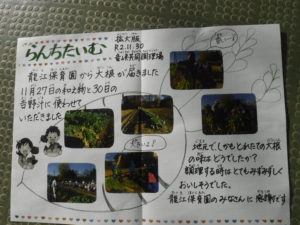 らんちたいむ
拡大版
R2.11.30
共同調理場
龍江保育園から大根が届きました
11月27日の和え物と30日の
吉野汁に使わせて
いただきました
地元でしかもとれたての大根
の味はどうでしたか?
調理する時にとてもみずみずしく
おいしそうでした。
龍江保育園のみなさんに感謝です